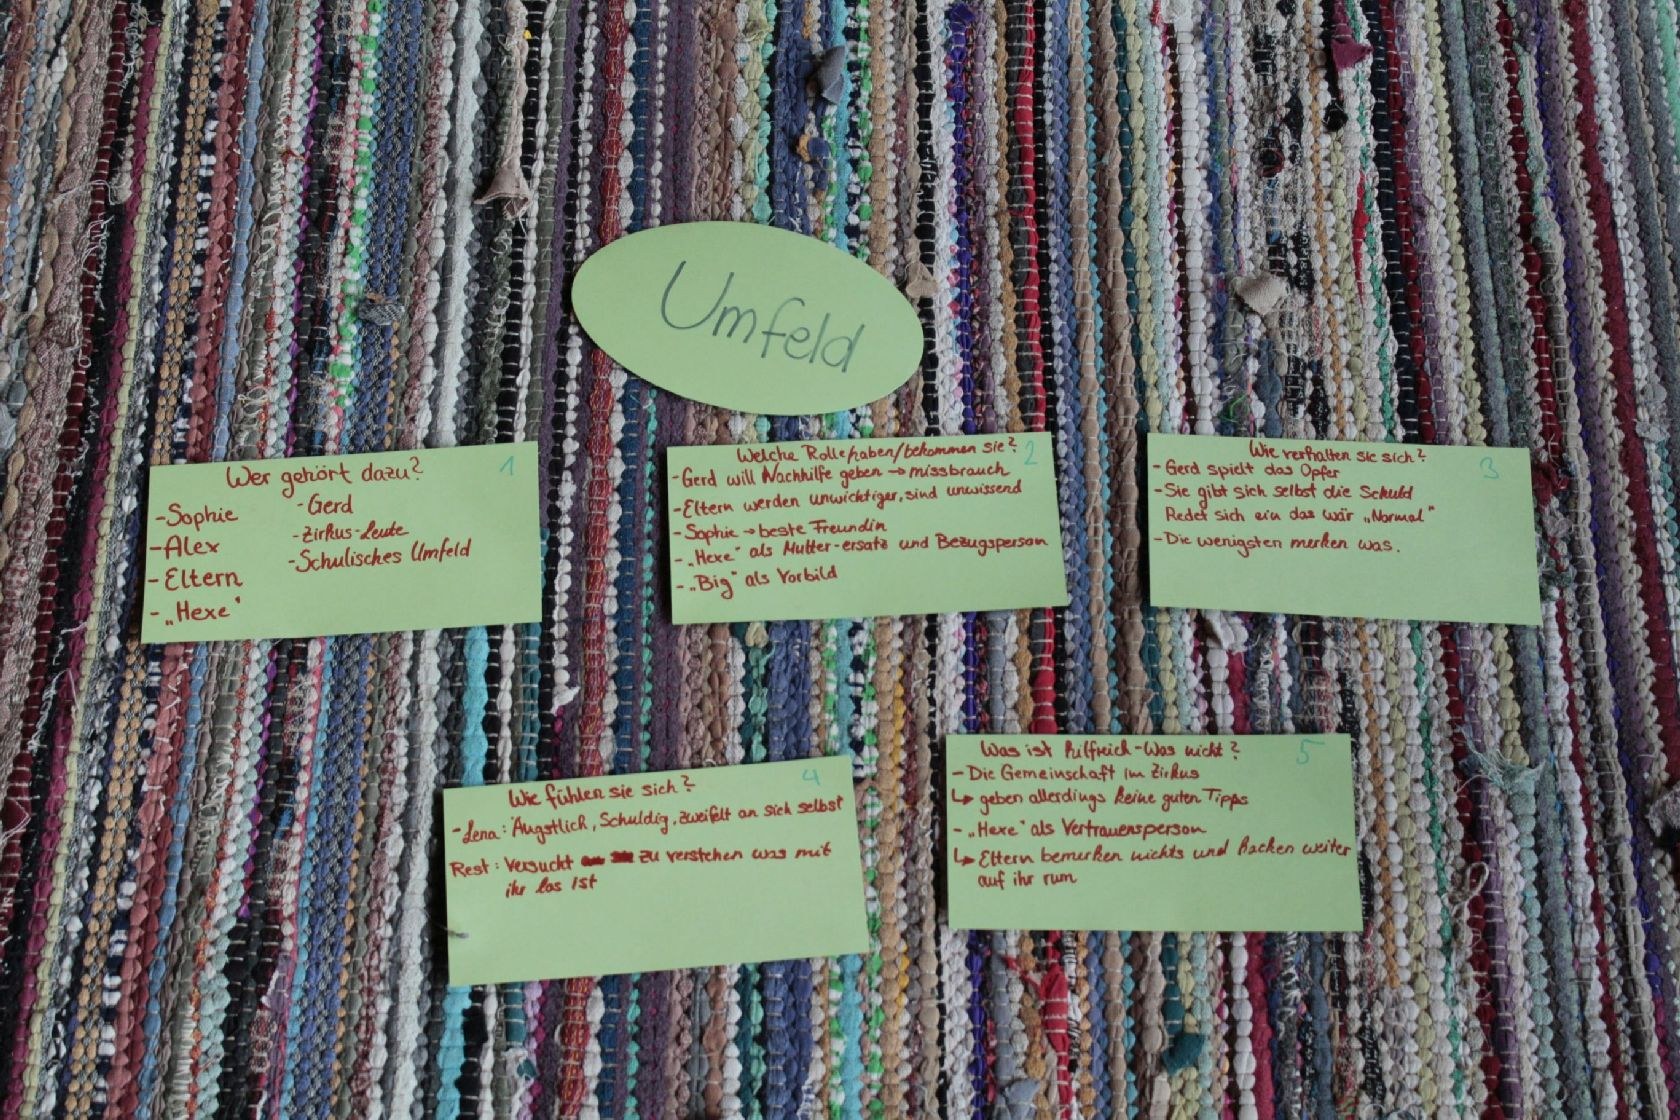 Umfeld
Wer gehört dazu? 1
-Sophie
-Alex
-Eltern
-„Hexe“
-Gerd
-Zirkus-Leute
-Schulisches Umfeld
Welche Rolle haben/bekommen sie? 2
-Gerd will Nachhilfe geben → missbrauch
-Eltern werden unwichtiger, sind unwissend
-Sophie → beste Freundin
-„Hexe“ als Mutter-ersatz und Bezugsperson
-„Big“ als Vorbild
Wie verhalten sie sich? 3
-Gerd spielt das Opfer
-Sie gibt sich selbst die Schuld
Redet sich ein das wär „Normal“
-Die wenigsten merken was.
Wie fühlen sie sich? 4
-Lena: Ängstlich, Schuldig, zweifelt an sich selbst
Rest: Versucht zu verstehen was mit
ihr los ist
Was ist hilfreich-Was nicht? 5
-Die Gemeinschaft im Zirkus
↳ geben allerdings keine guten Tipps
-„Hexe“ als Vertrauensperson
↳ Eltern bemerken nichts und hacken weiter
auf ihr rum